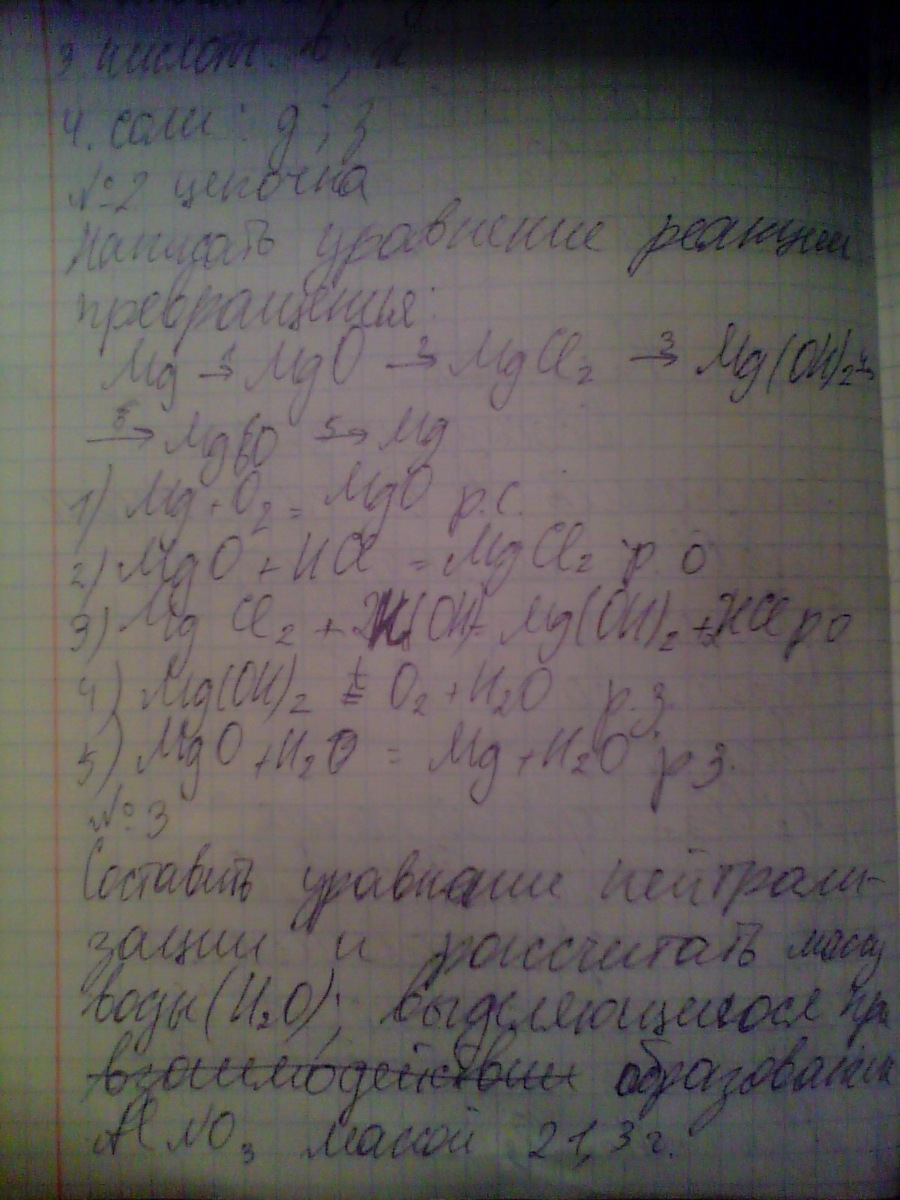 3. кислоты: в, и
4. соли: д; з
№2 цепочка
Написать уравнение реакции
превращения:
Mg →¹ MgO →² MgCl₂ →³ Mg(OH)₂ →⁴
→ MgO →⁵ Mg
1) Mg + O₂ = MgO р.с.
2) MgO + HCl = MgCl₂ р.о
3) MgCl₂ + 2 (OH) = Mg(OH)₂ + 2HCl р о
4) Mg(OH)₂ =ᵗ O₂ + H₂O р.з.
5) MgO + H₂O = Mg + H₂O р з.
№3
Составить уравнение нейтрали-
зации и рассчитать массу
воды (H₂O); выделяющегося при
взаимодействии образовании
AlNO₃ масой 21,3 г.